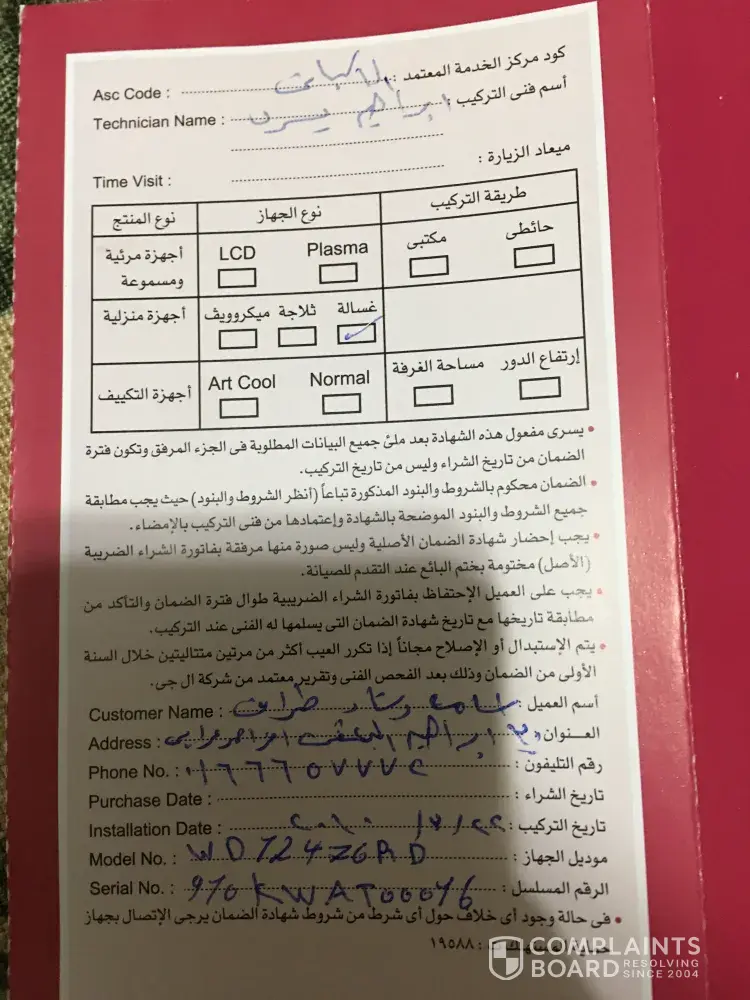 كود مركز الخدمة المعتمد :
Asc Code :
أسم فنى التركيب : ابراهيم يسرى
Technician Name :
ميعاد الزيارة :
Time Visit :
نوع المنتج نوع الجهاز طريقة التركيب
أجهزة مرئية ومسموعة LCD Plasma مكتبى حائطى
أجهزة منزلية غسالة ثلاجة ميكروويف
أجهزة التكييف Art Cool Normal مساحة الغرفة إرتفاع الدور
• يسرى مفعول هذه الشهادة بعد ملئ جميع البيانات المطلوبة فى الجزء المرفق وتكون فترة
الضمان من تاريخ الشراء وليس من تاريخ التركيب.
• الضمان محكوم بالشروط والبنود المذكورة تباعاً (أنظر الشروط والبنود) حيث يجب مطابقة
جميع الشروط والبنود الموضحة بالشهادة وإعتمادها من فنى التركيب بالإمضاء.
• يجب إحضار شهادة الضمان الأصلية وليس صورة منها مرفقة بفاتورة الشراء الضريبة
(الأصل) مختومة بختم البائع عند التقدم للصيانة.
• يجب على العميل الإحتفاظ بفاتورة الشراء الضريبية طوال فترة الضمان والتأكد من
مطابقة تاريخها مع تاريخ شهادة الضمان التى يسلمها له الفنى عند التركيب.
• يتم الإستبدال أو الإصلاح مجاناً إذا تكرر العيب أكثر من مرتين متتاليتين خلال السنة
الأولى من الضمان وذلك بعد الفحص الفنى وتقرير معتمد من شركة ال جى.
أسم العميل :
Customer Name :
العـــنوان : ابراهيم
Address :
رقم التليفون : ٠١٦٦٦٥٧٧٧٤
Phone No. :
تاريخ الشراء :
Purchase Date :
تاريخ التركيب :
Installation Date :
موديل الجهاز :
Model No. : WD1247GRD
الرقم المسلسل :
Serial No. : 910KWAT00046
• فى حالة وجود أى خلاف حول أى شرط من شروط شهادة الضمان يرجى الإتصال بجهاز
١٩٥٨٨
COMPLAINTS
BOARD RESOLVING
SINCE 2004